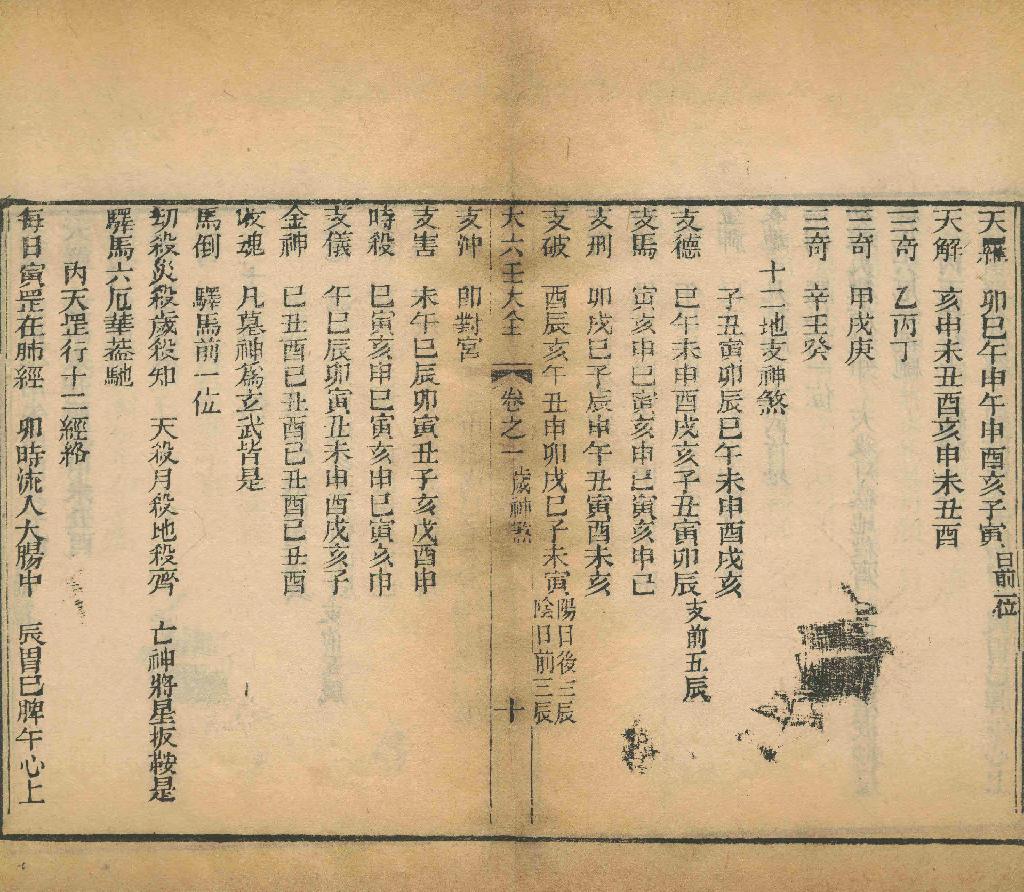 天羅 卯巳午申午申酉亥子寅 日前一位
天解 亥申未丑酉亥申未丑酉
三奇 乙丙丁
三奇 甲戊庚
三奇 辛壬癸
十二地支神煞
子丑寅卯辰巳午未申酉戌亥
支德 巳午未申酉戌亥子丑寅卯辰 支前五辰
支馬 寅亥申巳寅亥申巳寅亥申巳
支刑 卯戌巳子辰申午丑寅酉未亥
支破 酉辰亥午丑申卯戌巳子未寅 陽日後三辰 陰日前三辰
大六壬大全 卷之一 歲神煞 十
支沖 即對宮
支害 未午巳辰卯寅丑子亥戌酉申
時殺 巳寅亥申巳寅亥申巳寅亥申
支儀 午巳辰卯寅丑未申酉戌亥子
金神 巳丑酉巳丑酉巳丑酉巳丑酉
收魂 凡墓神為玄武皆是
馬倒 驛馬前一位
刧殺災殺歲殺知 天殺月殺地殺齊 亡神將星扳鞍是
驛馬六厄華蓋馳
內天罡行十二經絡
每日寅罡在肺經 卯時流入大腸中 辰胃巳脾午心上